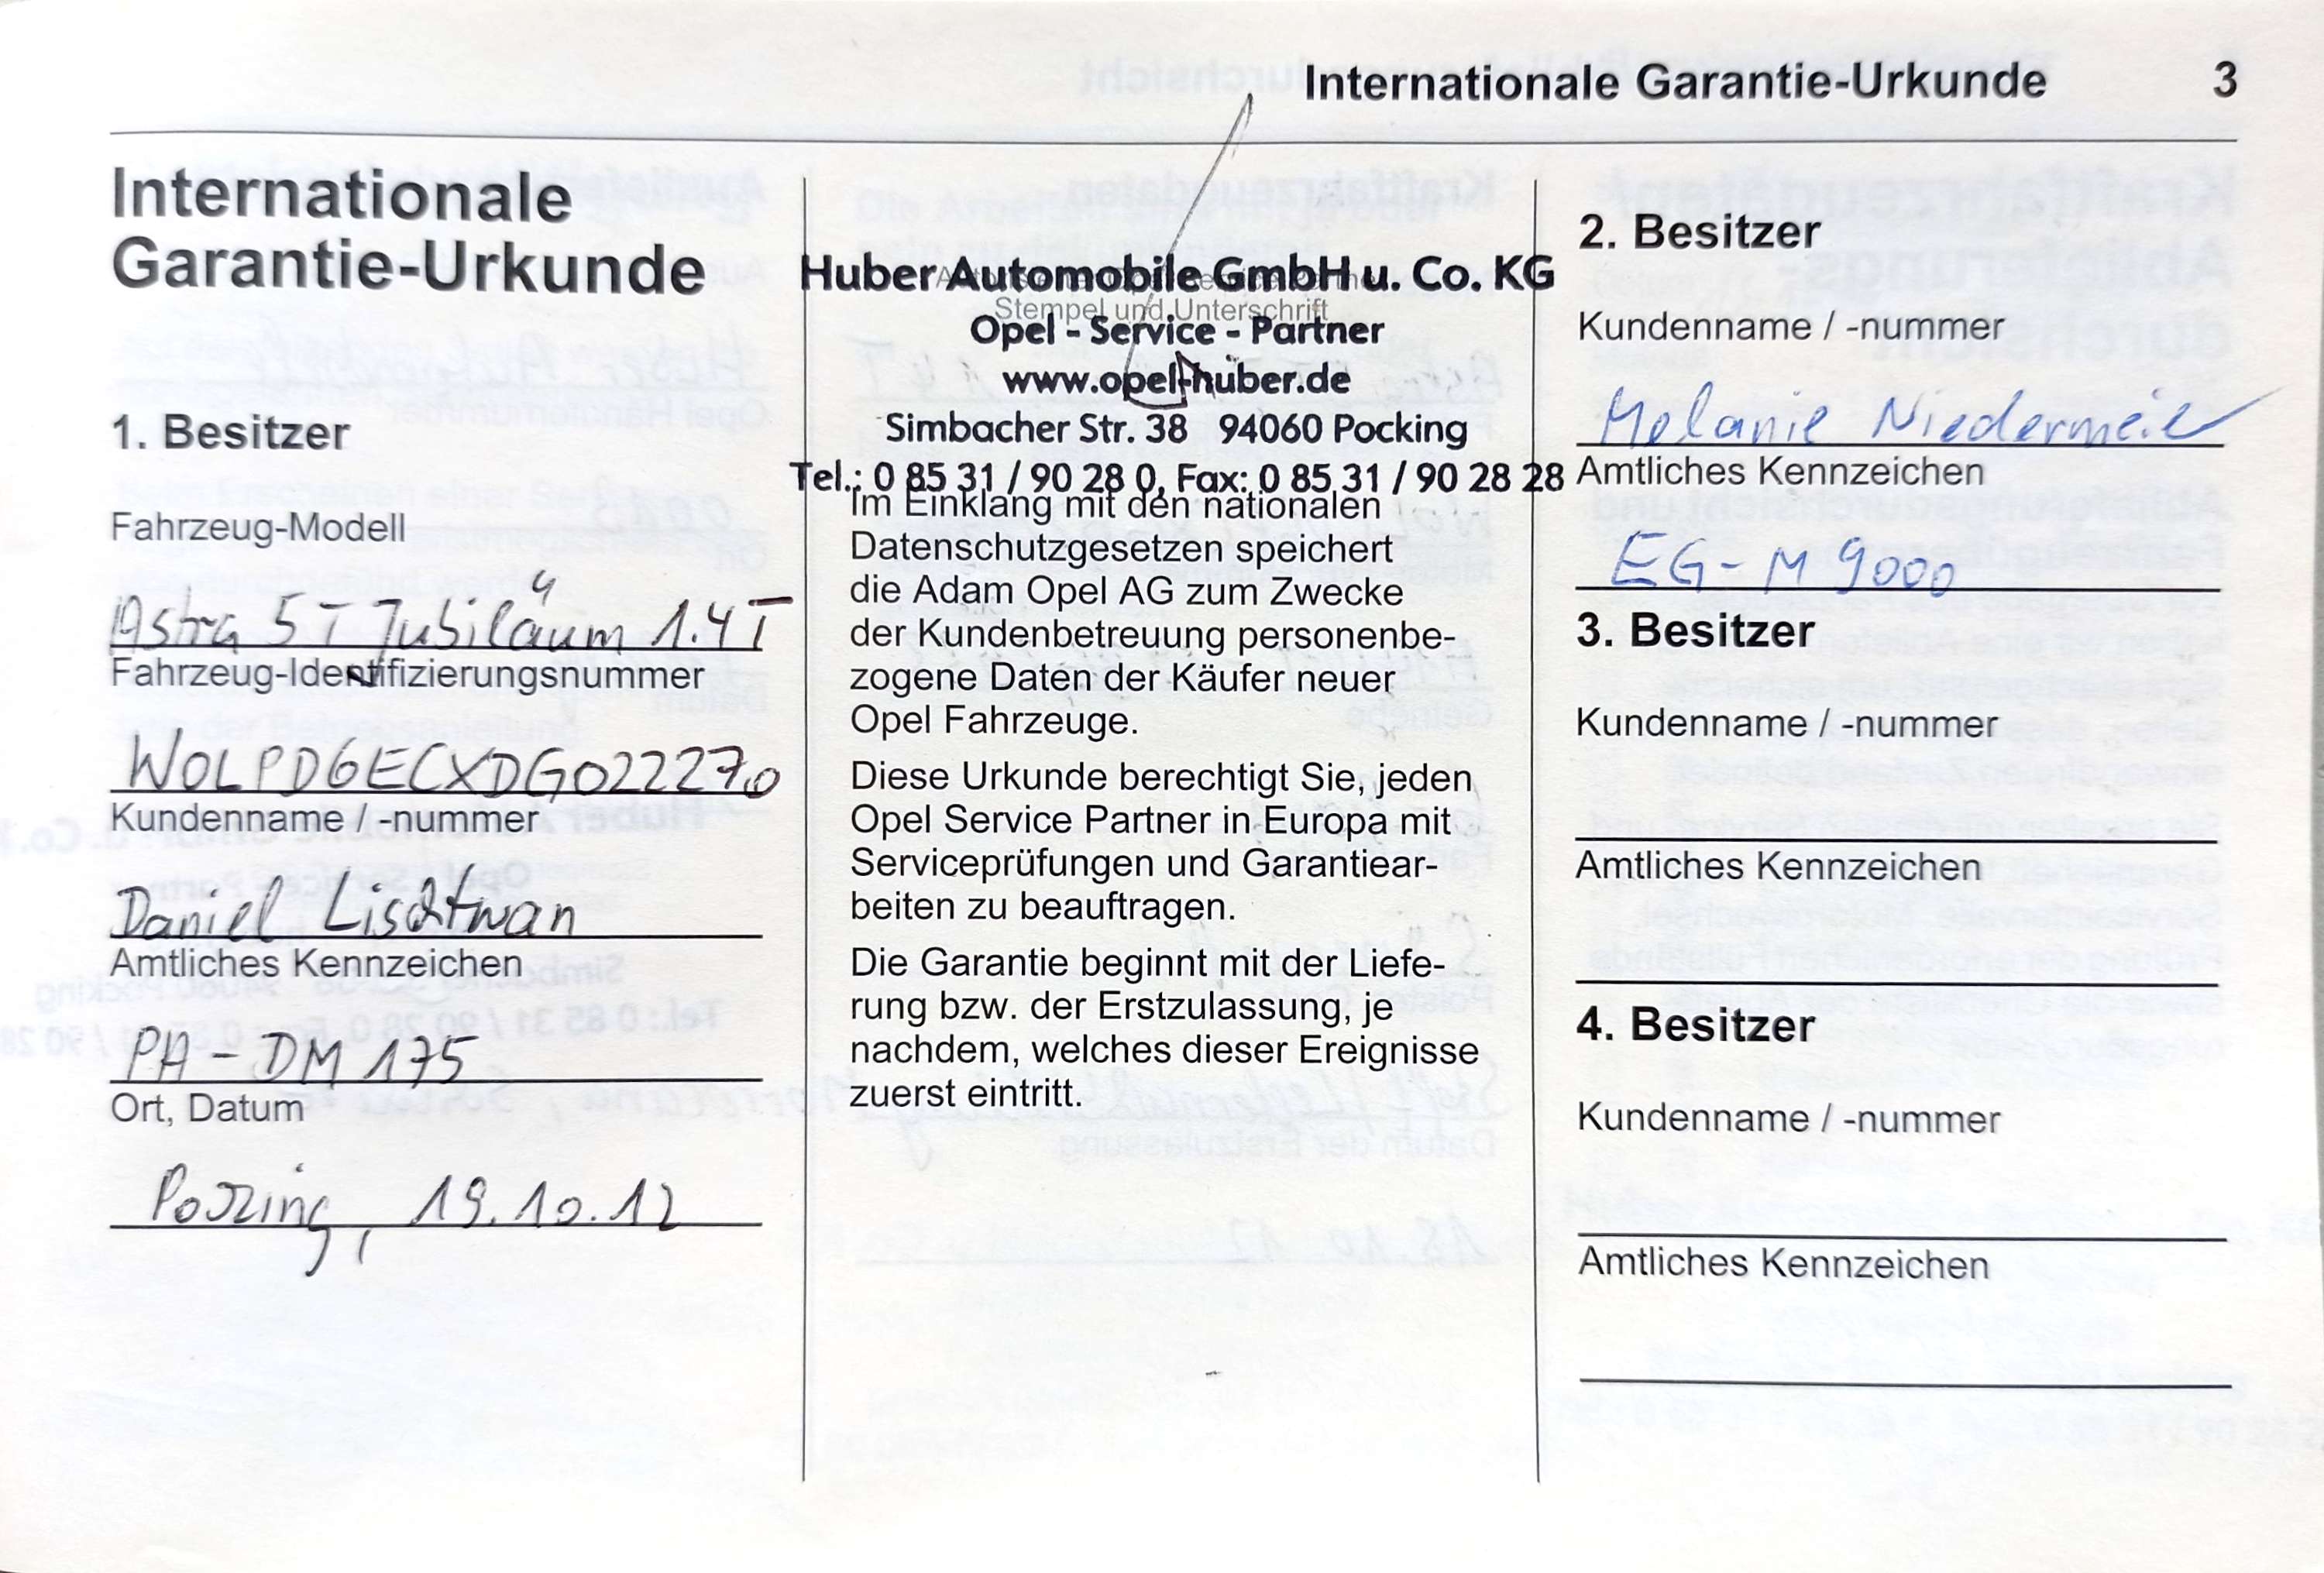 Internationale Garantie-Urkunde 3
Internationale
Garantie-Urkunde
1. Besitzer
Fahrzeug-Modell
Astra 5T Jubiläum 1.4T
Fahrzeug-Identifizierungsnummer
W0LPD6ECXDG022270
Kundenname / -nummer
Daniel
Amtliches Kennzeichen
PA - DM 175
Ort, Datum
Pocking, 19.10.12
Huber Automobile GmbH u. Co. KG
Stempel und Unterschrift
Opel - Service - Partner
www.opel-huber.de
Simbacher Str. 38 94060 Pocking
Tel.: 0 85 31 / 90 28 0, Fax: 0 85 31 / 90 28 28
Im Einklang mit den nationalen
Datenschutzgesetzen speichert
die Adam Opel AG zum Zwecke
der Kundenbetreuung personenbe-
zogene Daten der Käufer neuer
Opel Fahrzeuge.
Diese Urkunde berechtigt Sie, jeden
Opel Service Partner in Europa mit
Serviceprüfungen und Garantiear-
beiten zu beauftragen.
Die Garantie beginnt mit der Liefe-
rung bzw. der Erstzulassung, je
nachdem, welches dieser Ereignisse
zuerst eintritt.
2. Besitzer
Kundenname / -nummer
Melanie Niedermeier
Amtliches Kennzeichen
EG - M 9000
3. Besitzer
Kundenname / -nummer
Amtliches Kennzeichen
4. Besitzer
Kundenname / -nummer
Amtliches Kennzeichen